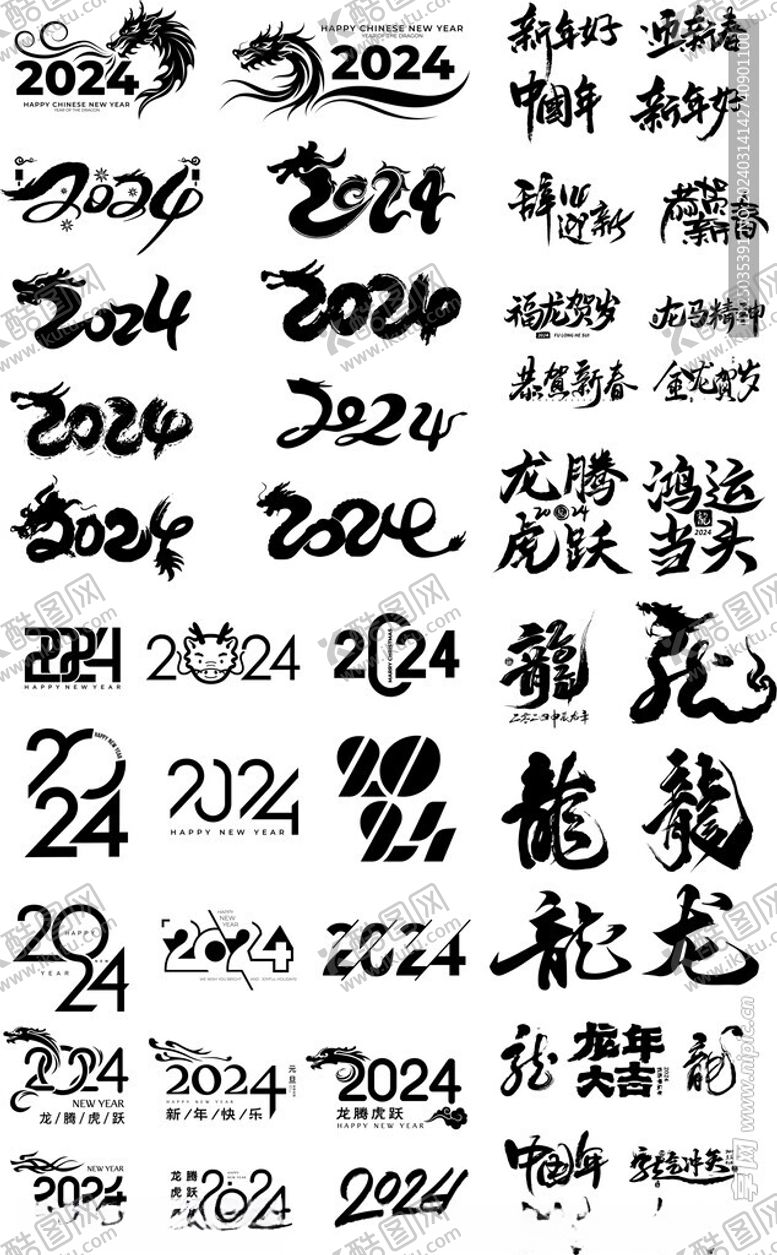 2024
HAPPY CHINESE NEW YEAR
YEAR OF THE DRAGON
HAPPY CHINESE NEW YEAR
YEAR OF THE DRAGON
2024
新年好
迎新春
中國年
新年好
2024
2024
辞旧迎新
恭贺新春
2024
2024
福龙贺岁
2024 FU LONG HE SUI
龙马精神
2024
2024
恭贺新春
金龙贺岁
2024
2024
龙腾
2024
虎跃
鸿运
龍
2024
当头
2024
HAPPY NEW YEAR
2024
2024
MARRY CHRISTMAS
龍
二〇二四甲辰龙年
龙
2024
HAPPY NEW YEAR
2024
HAPPY NEW YEAR
2024
龍
龍
2024
HAPPY
YEAR
HAPPY
NEW
YEAR
2024
WE WISH YOU BRIGHT
AND JOYFUL HOLIDAYS
2024
龍
龙
2024
NEW YEAR
龙/腾/虎/跃
2024
元旦
HAPPY NEW YEAR
新/年/快/乐
2024
龙腾虎跃
HAPPY NEW YEAR
龙
龙年
大吉
2024
龍
NEW YEAR
2024
龙腾
虎跃
HAPPY NEW YEAR
2024
2024
中國年
龙气冲天
酷图网
www.ikutu.com
www.nipic.cn